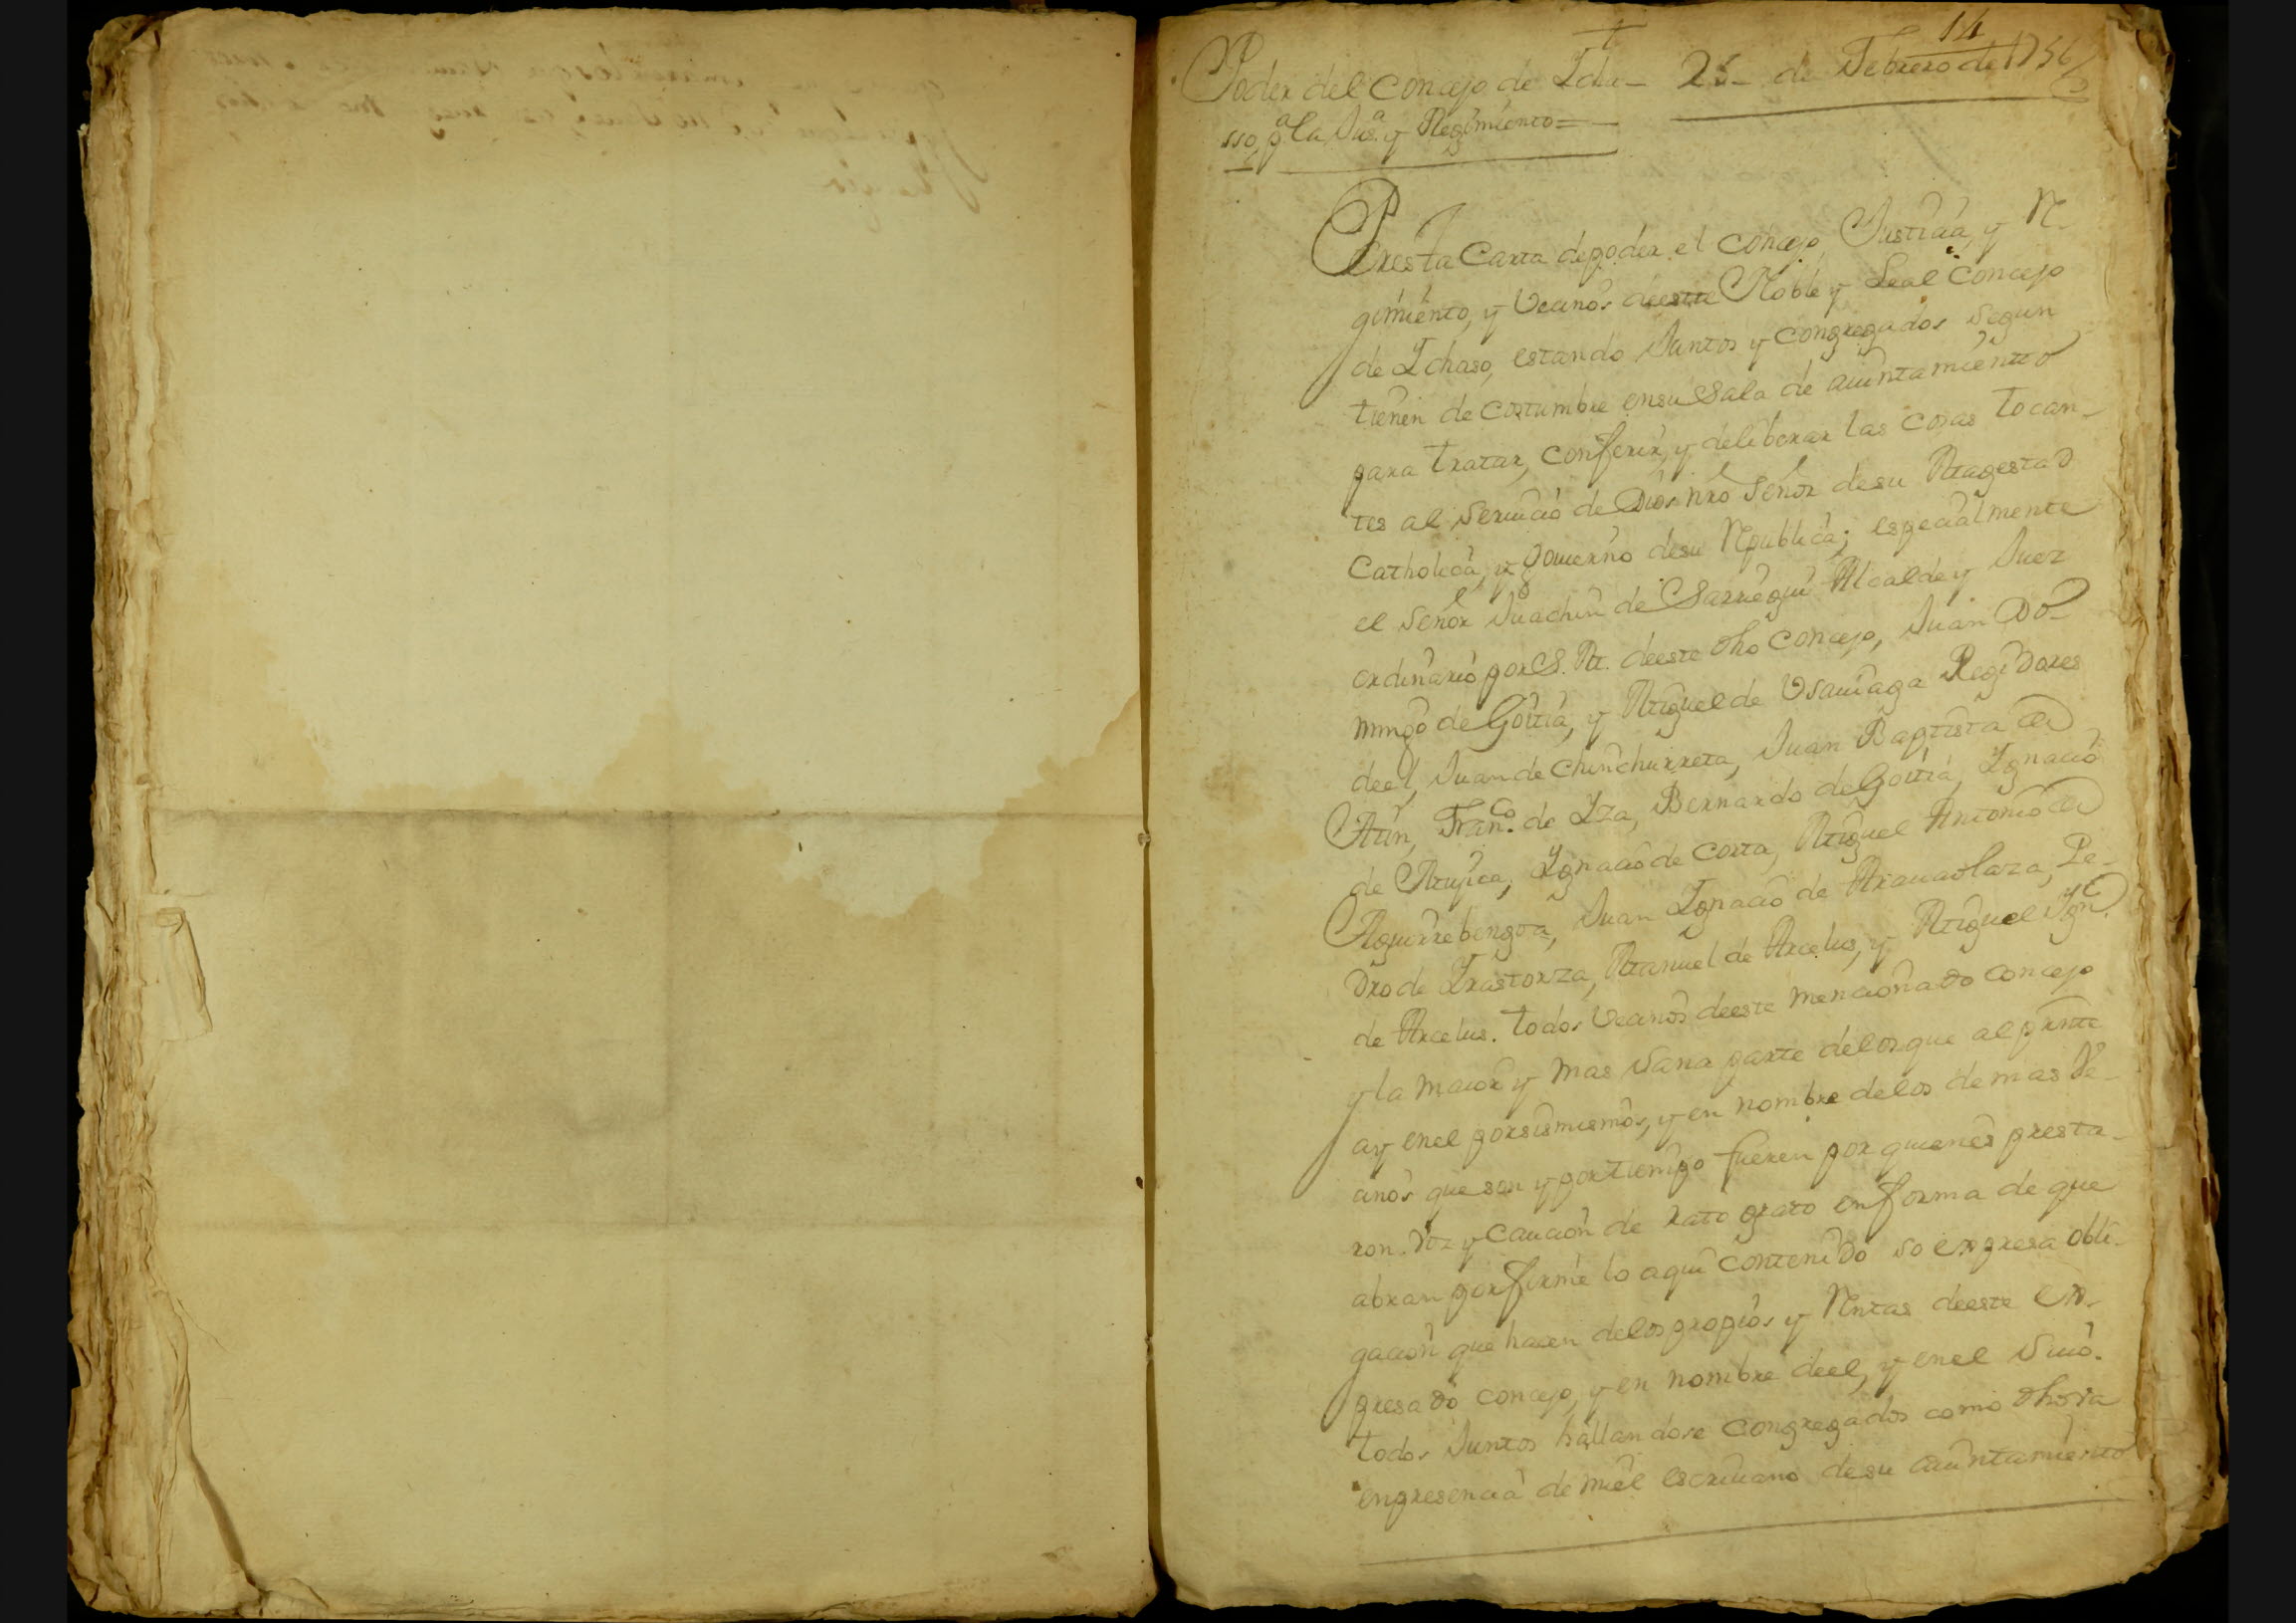 14
Poder del Concejo de Ycha- 25- de Febrero de 1756
sso, pª la Jusª. y Regimiento=
Por esta Carta de poder el Concejo, Justicia, y R-
gimiento, y Vecinos de este Noble y Leal Concejo
de Ychaso, estando Juntos y Congregados segun
tienen de costumbre en su Sala de aiuntamiento
para tratar, conferir, y deliberar las cosas tocan-
tes al servicio de Dios nrõ Señor de su Magestad
Catholica, y govierno de su Republica; especialmente
el Señor Juachin de Sarriegui Alcalde y Juez
ordinario por S. M. de este dho Concejo, Juan Do-
mingo de Goitia, y Miguel de Vsauiaga Regidores
de el, Juan de Chinchurreta, Juan Baptista de
Atin, Franco. de Yza, Bernardo de Goitia, Ygnacio
de Mujica, Ygnacio de Corta, Miguel Antonio de
Aguirrebengoa, Juan Ygnacio de Aramolaza, Pe-
dro de Yrastorza, Manuel de Arcelus, y Miguel Ygno.
de Arcelus. todos Vecinos de este mencionado Concejo
y la maior y mas Sana parte de los que al preste
ay en el por si mismos, y en nombre de los demas Ve-
cinos que son y por tiempo fueren por quienes presta-
ron. Voz y Caucion de rato grato en forma de que
abran por firme lo aqui contenido so expresa obli-
gacion que hacen de los propios y Rentas de este ex-
presado Concejo, y en nombre de el, y en el Suio.
todos Juntos hallandose congregados como dho va
en presencia de mi el escriuano de su aiuntamiento